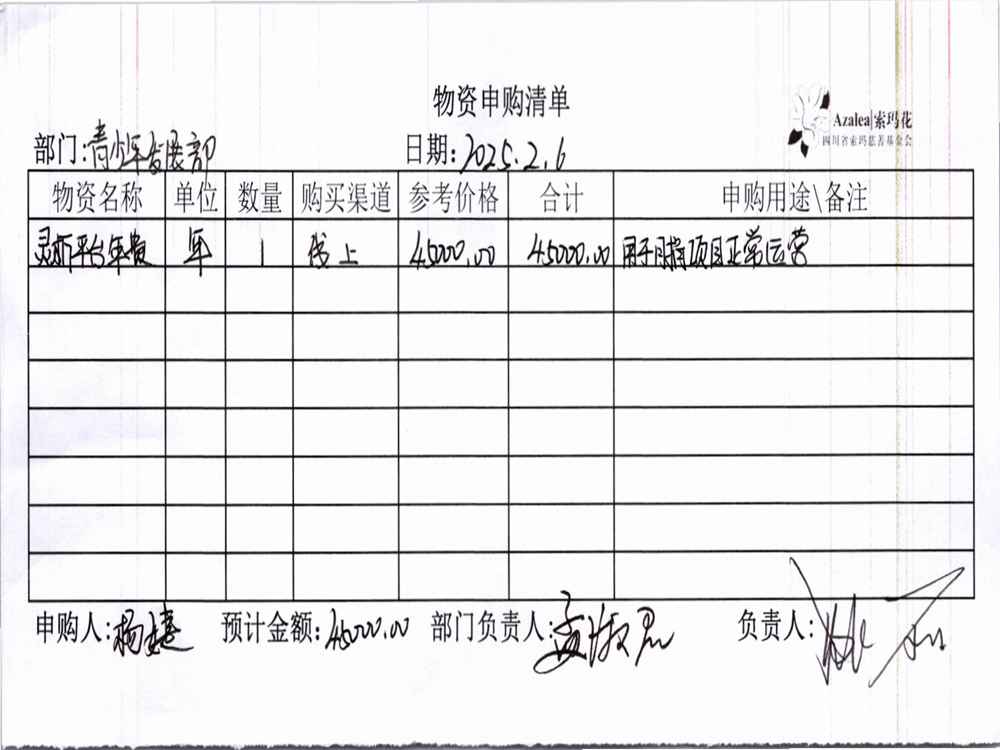 物资申购清单
Azalea|索玛花
四川省索玛慈善基金会
部门:青少年发展部
日期:2025.2.6
物资名称 单位 数量 购买渠道 参考价格 合计 申购用途\备注
灵析平台年费 年 1 线上 45000.00 45000.00 用于月捐项目正常运营
申购人:杨 预计金额:45000.00 部门负责人: 负责人: